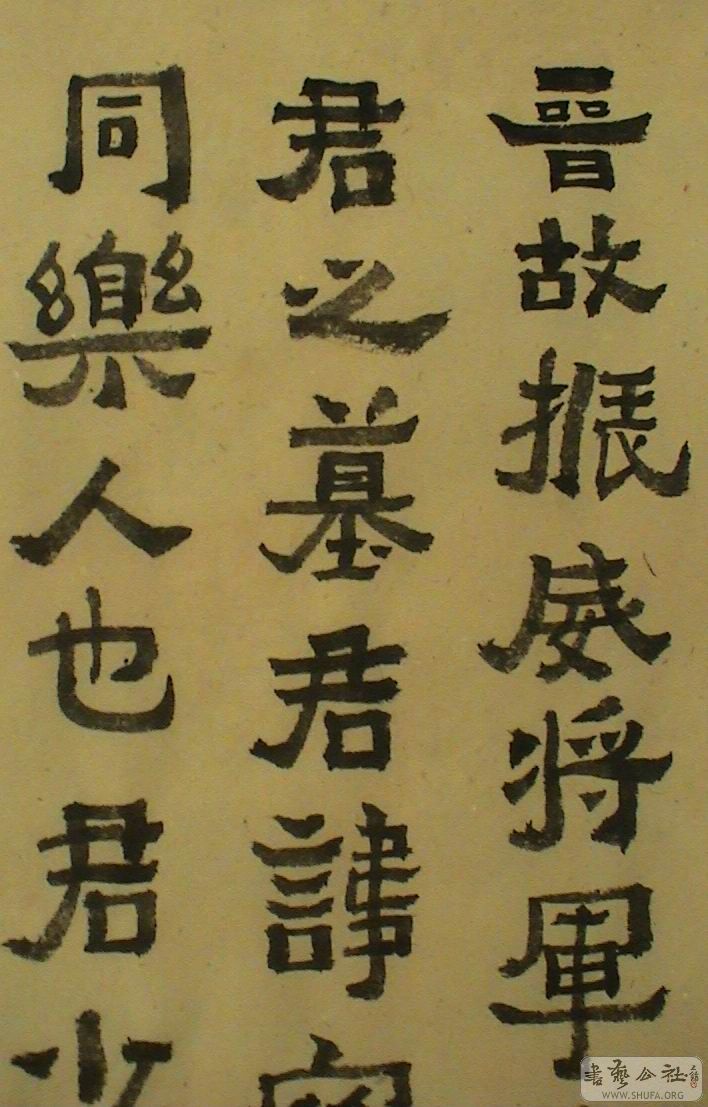 晉故振威将軍
君之墓君諱
同樂人也君少
書藝公社
WWW.SHUFA.ORG